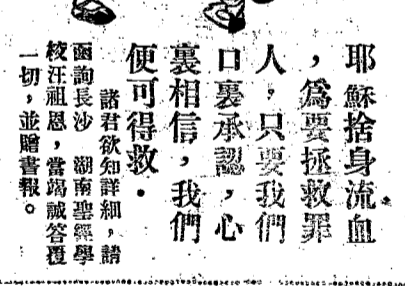 耶穌捨身流血
，爲要拯救罪
人，只要我們
口裏承認，心
裏相信，我們
便可得救．
諸君欲知詳細，請
函詢長沙　湖南聖經學
校汪祖恩，當竭誠答覆
一切，並贈書報。